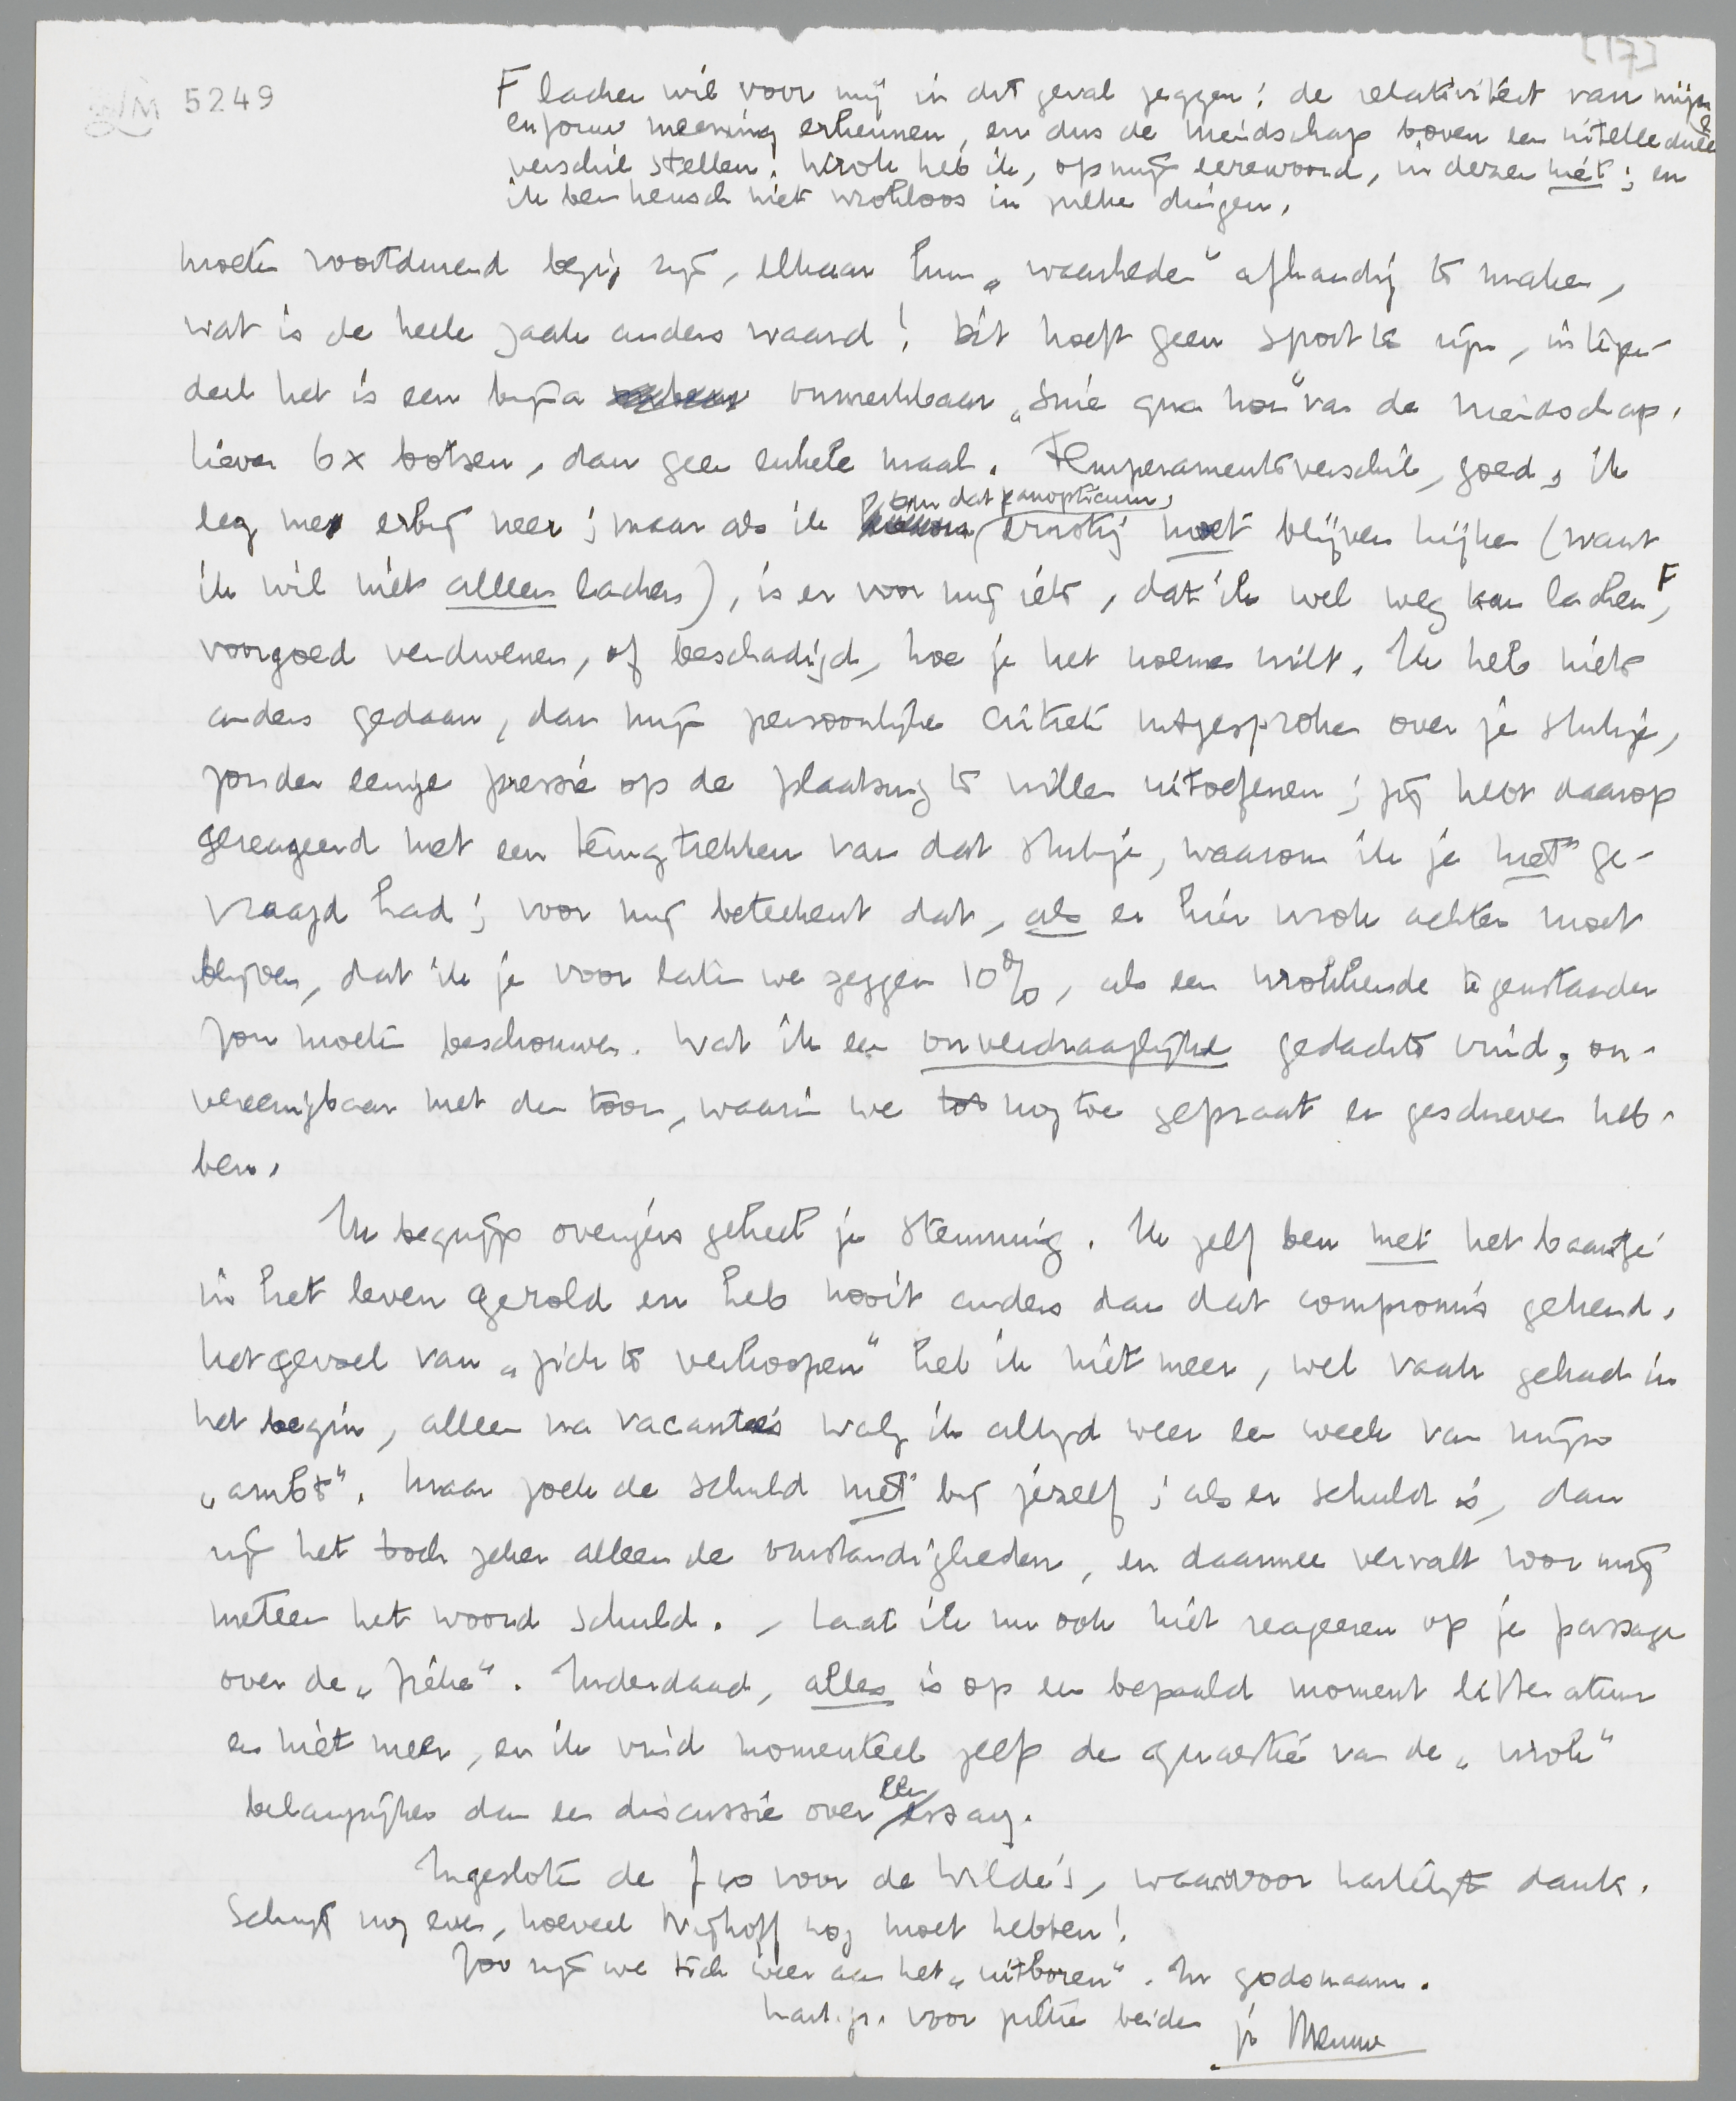 [17]
LM 5249
F lachen wil voor mij in dit geval zeggen: de relativiteit van mijn
en jouw meening erkennen, en dus de vriendschap boven een intellectueel
verschil stellen. Wrok heb ik, op mijn eerewoord, in dezen niet; en
ik ben heusch niet wrokloos in zulke dingen.
moeten voortdurend bezig zijn, elkaar hun „waarheden" afhandig te maken,
wat is de heele zaak anders waard! Dit hoeft geen sport te zijn, integen-
deel het is een bijna onmerkbaar „sine qua non" van de vriendschap.
Liever 6x botsen, dan geen enkele maal. Temperamentsverschil, goed, ik
leg me erbij neer; maar als ik om dat panopticum, ernstig moet blijven kijken (want
ik wil niet alleen lachen), is er voor mij iets, dat ik wel weg kan lachen F,
voorgoed verdwenen, of beschadigd, hoe je het noemen wilt. Ik heb niets
anders gedaan, dan mijn persoonlijke critiek uitgesproken over je stukje,
zonder eenige pressie op de plaatsing te willen uitoefenen; jij hebt daarop
gereageerd met een terugtrekken van dat stukje, waarom ik je niet ge-
vraagd had; voor mij beteekent dat, als er hier wrok achter moet
blijven, dat ik je voor laten we zeggen 10%, als een wrokkende tegenstander
zou moeten beschouwen. Wat ik een onverdraaglijke gedachte vind, on-
vereenigbaar met den toon, waarin we tot nog toe gepraat en geschreven heb-
ben.
Ik begrijp overigens geheel je stemming. Ik zelf ben met het baantje
in het leven gerold en heb nooit anders dan dat compromis gekend.
Het gevoel van „zich te verkoopen" heb ik niet meer, wel vaak gehad in
het begin, alleen na vacanties walg ik altijd weer een week van mijn
„ambt". Maar zoek de schuld niet bij jezelf; als er schuld is, dan
zijn het toch zeker alleen de omstandigheden, en daarmee vervalt voor mij
meteen het woord schuld. - Laat ik nu ook niet reageeren op je passage
over de „zieke". Inderdaad, alles is op een bepaald moment litteratuur
en niet meer, en ik vind momenteel zelf de quaestie van de „wrok"
belangrijker dan een discussie over een essay.
Ingesloten de f 10 voor de Wilde's, waarvoor hartelijk dank.
Schrijf nog even, hoeveel Nijhoff nog moet hebben!
Zoo zijn we toch weer aan het „uitboren". In godsnaam.
hart. gr. voor jullie beiden je Menno